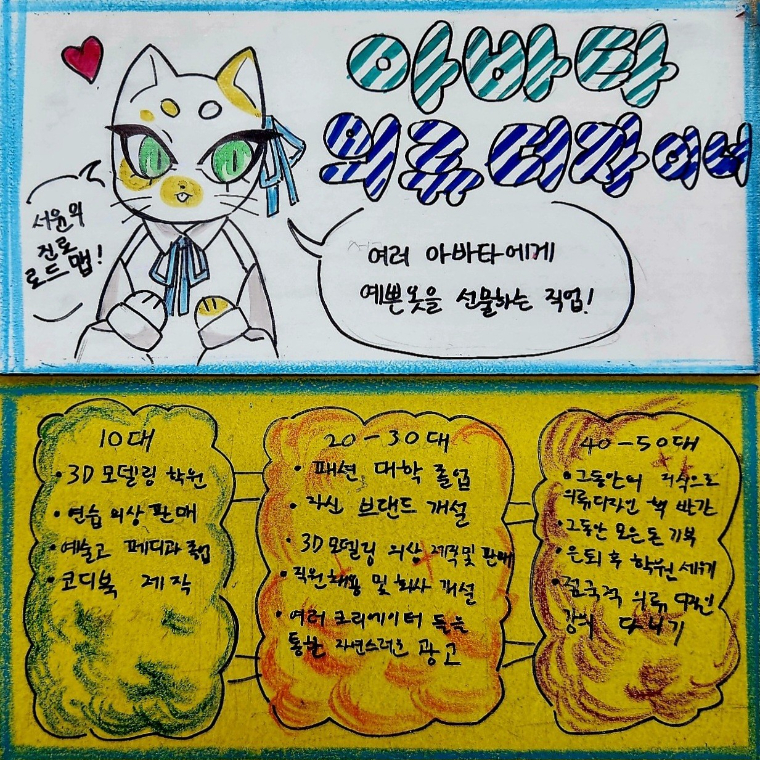 아바타
의류 디자이너
서윤의
진로
로드맵!
여러 아바타에게
예쁜옷을 선물하는 직업!
10대
• 3D 모델링 학원
• 연습 의상 판매
• 예술고 패디과 졸업
• 코디북 제작
20-30대
• 패션 대학 졸업
• 자신 브랜드 개설
• 3D 모델링 의상 제작및 판매
• 직원채용 및 회사 개설
• 여러 크리에이터 들을
통한 자연스러운 광고
40-50대
• 그동안의 지식으로
의류디자인 책 발간
• 그동안 모은돈 기부
• 은퇴 후 학원 세우기
• 전국적 의류 디자인
강의 다니기